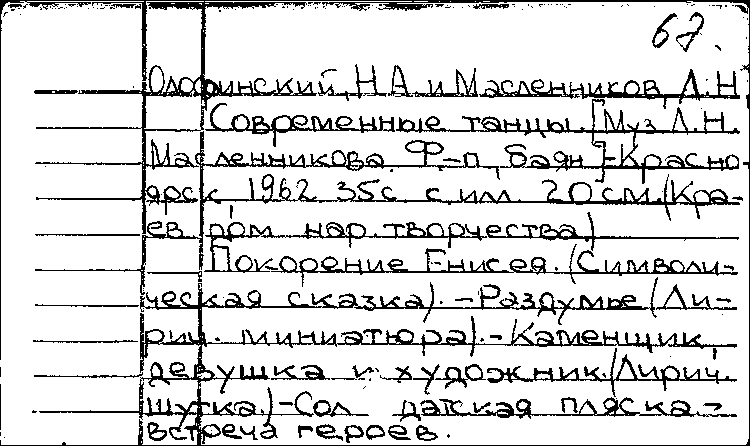 67.
Олофинский, Н.А. и Масленников, Л.Н.
Современные танцы. [Муз. Л.Н.
Масленникова. Ф-п, баян]-Красно-
ярск 1962 35с. с илл. 20см.(Кра-
ев дом нар. творчества.)
Покорение Енисея. (Символи-
ческая сказка). -Раздумье (Ли-
рич. миниатюра).-Каменщик,
девушка и художник.(Лирич.
шутка.)-Солдатская пляска.-
встреча героев.